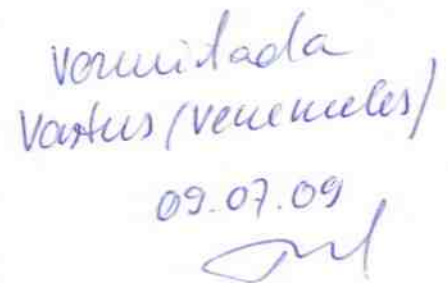 Vormistada
vastus (venemeeles)
09.07.09